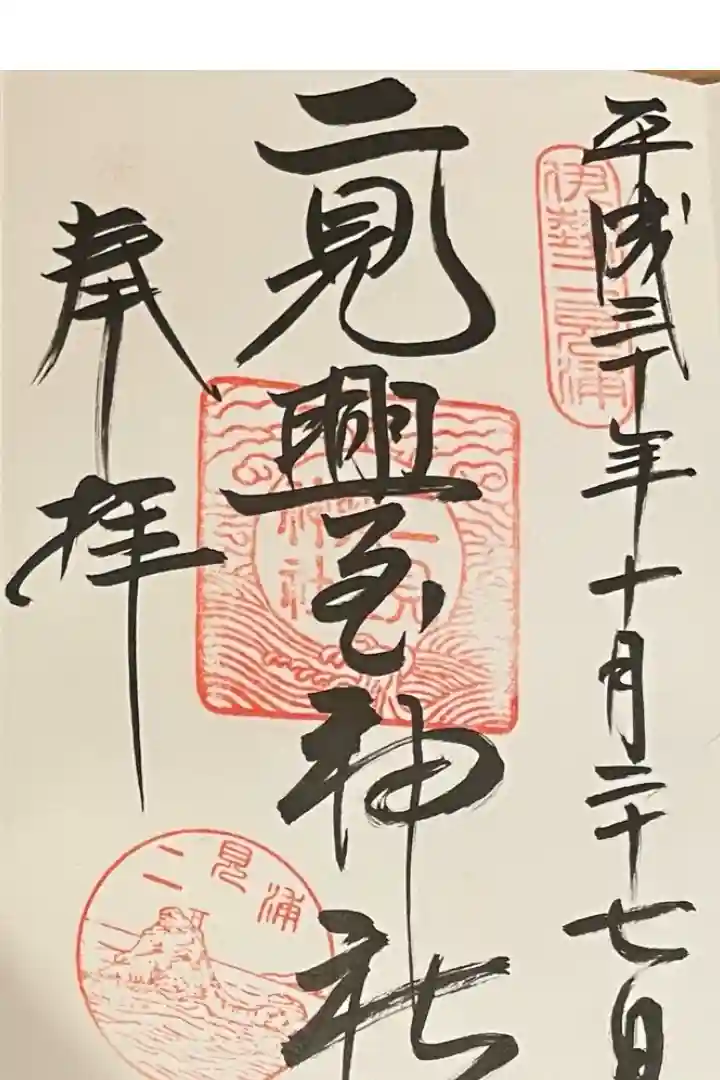 平成三十年十月二十七日
伊勢二見浦
二見興玉神社
奉拝
二見浦